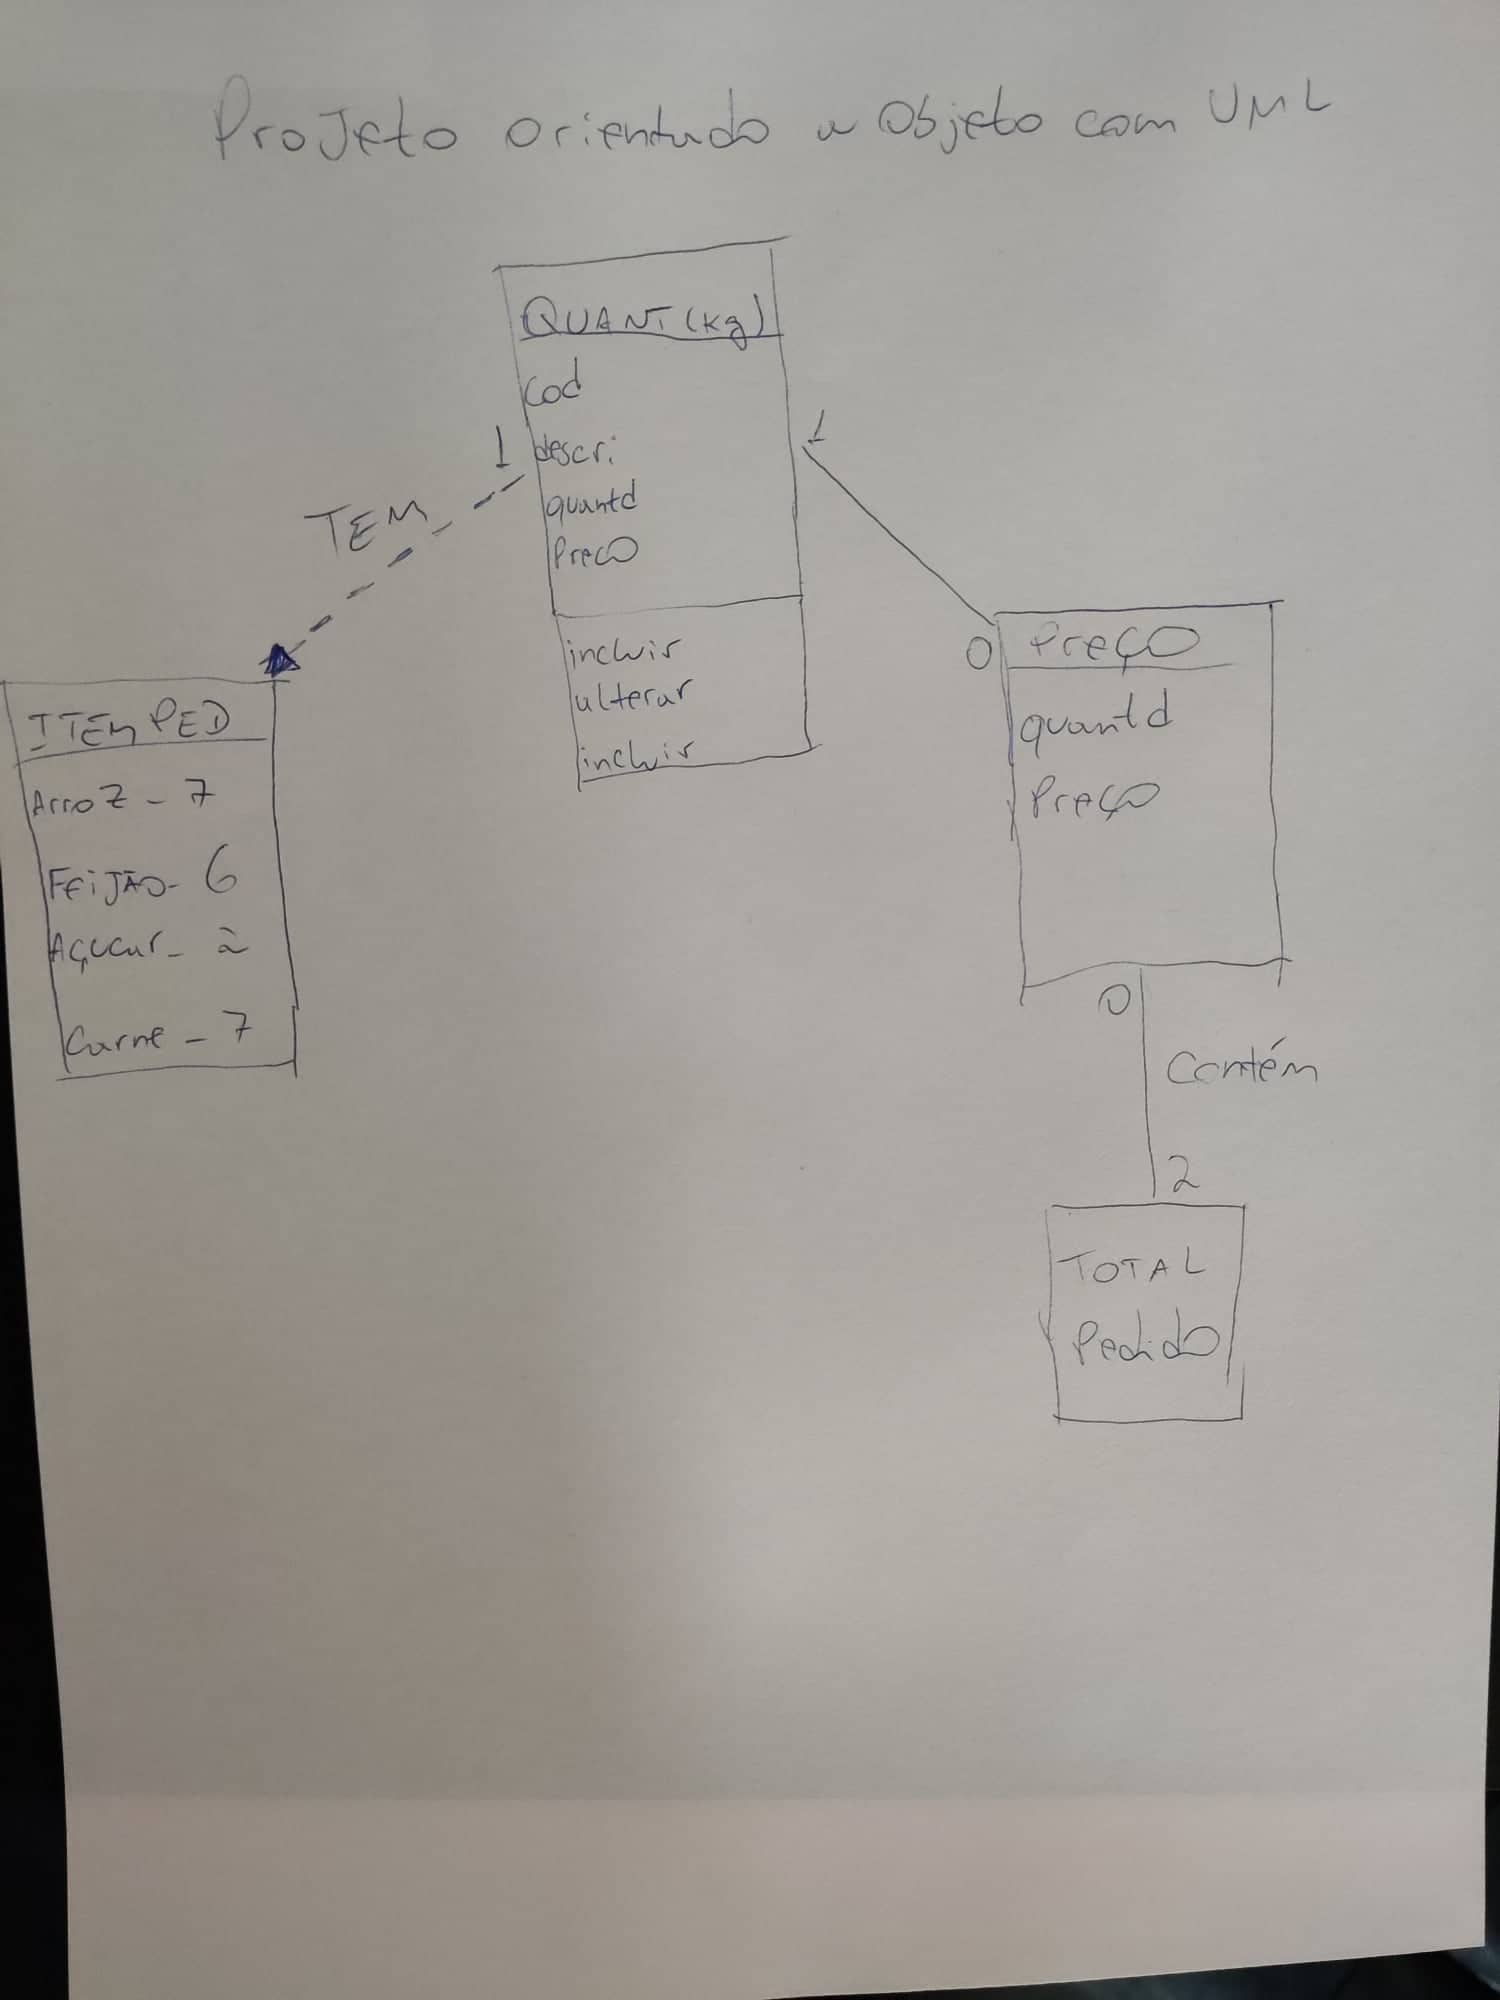 Projeto orientado a Objeto com UML
QUANT (kg)
Cod
descri
quantd
Preço
incluir
alterar
incluir
1
TEM
1
0
ITEM PED
Arroz - 7
FEIJÃO - 6
Açucar - 2
Carne - 7
Preço
quantd
Preço
0
Contém
2
TOTAL
Pedido